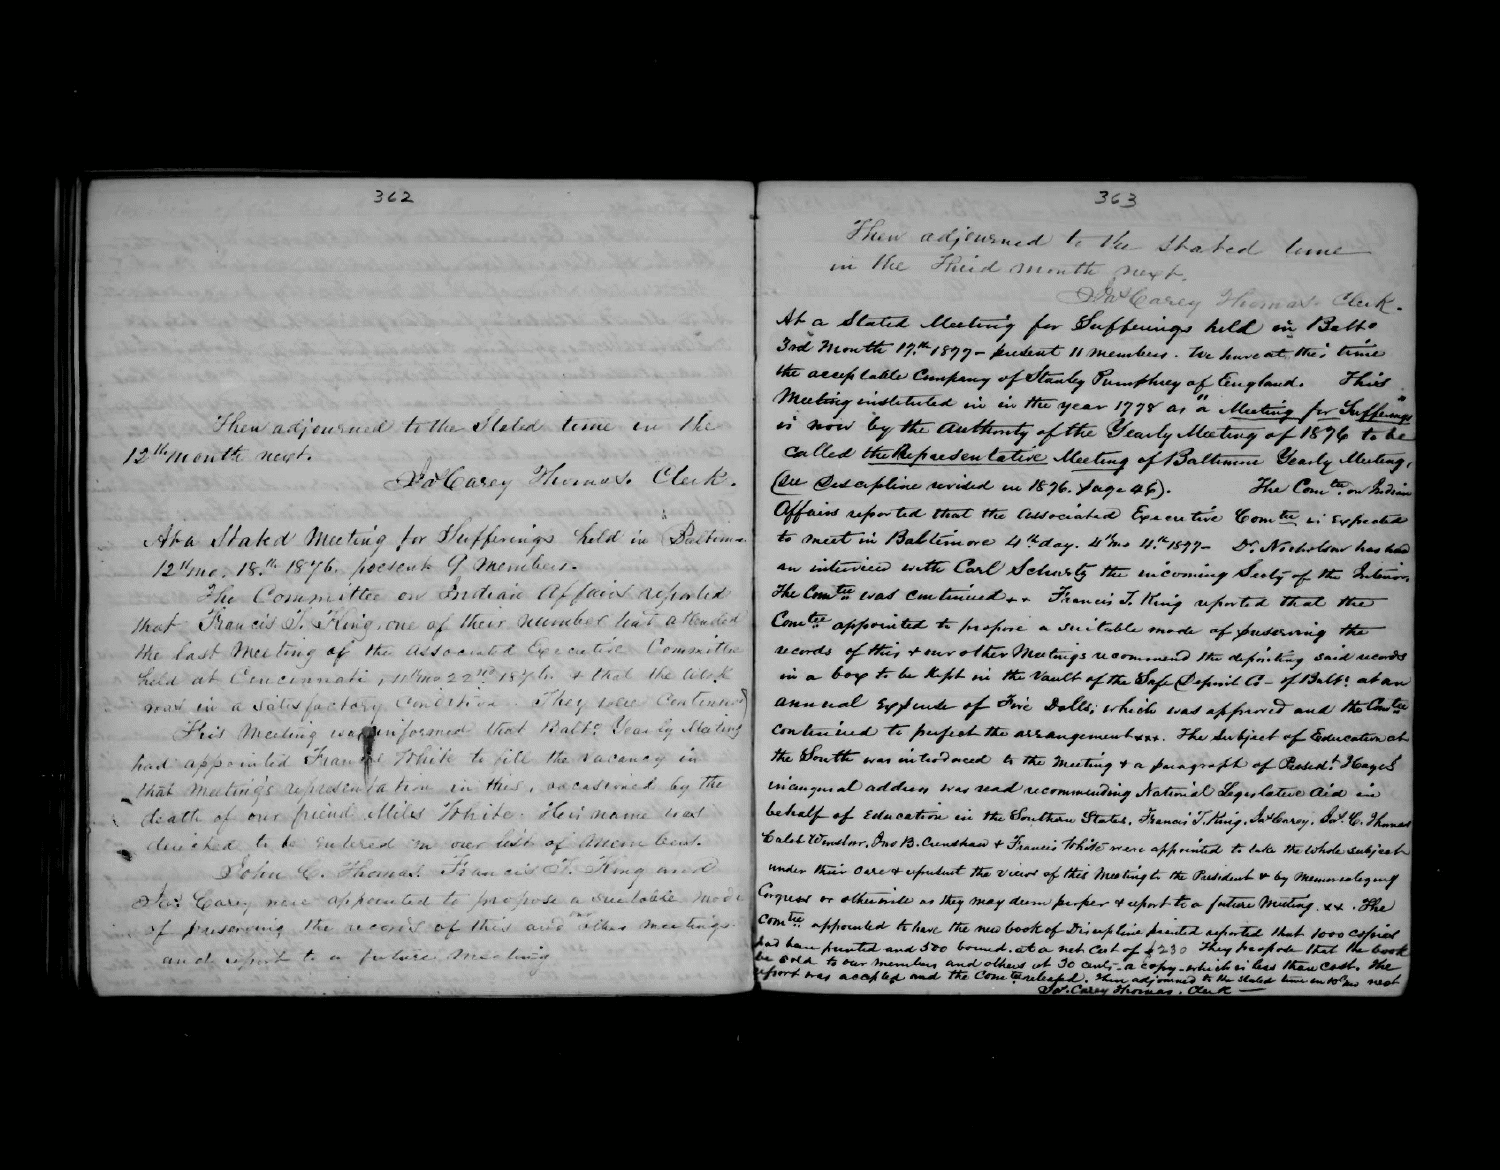 362
Then adjourned to the Stated time in the
12th month next.
Jas Carey Thomas. Clerk.
At a Stated Meeting for Sufferings held in Baltimore
12th mo. 18th 1876. present 9 members.
The Committee on Indian Affairs reported
that Francis T. King, one of their number had attended
the last Meeting of the Associated Executive Committee
held at Cincinnati, 11th mo 22nd 1876. & that the work
was in a satisfactory condition. They were continued
This Meeting was informed that Balto Yearly Meeting
had appointed Francis White to fill the vacancy in
that meeting's representation in this, occasioned by the
death of our friend Miles White. His name was
directed to be entered on our list of members.
John C. Thomas, Francis T. King and
Jas. Carey were appointed to propose a suitable mode
of preserving the records of this and our other meetings
and report to a future Meeting
363
Then adjourned to the stated time
in the Third month next.
Jas Carey Thomas. Clerk.
At a Stated Meeting for Sufferings held in Balto
3rd Month 17th 1877 - present 11 members. We have at this time
the acceptable Company of Stanley Pumphrey of England. This
Meeting instituted in in the year 1778 as "a Meeting for Sufferings"
is now by the Authority of the Yearly Meeting of 1876 to be
called the Representative Meeting of Baltimore Yearly Meeting,
(see Discipline revised in 1876. page 46). The Comtee on Indian
Affairs reported that the Associated Executive Comtee is expected
to meet in Baltimore 4th day. 4th mo 4th 1877 - Dr. Nicholson has had
an interview with Carl Schurtz the incoming Secty of the Interior.
The Comtee was continued ++ Francis T. King reported that the
Comtee appointed to propose a suitable mode of preserving the
records of this & our other Meetings recommend the depositing said records
in a box to be kept in the Vault of the Safe Deposit Co - of Balto at an
annual expense of Five Dolls; which was approved and the Comtee
continued to perfect the arrangement xxx. The subject of Education at
the South was introduced to the Meeting & a paragraph of Presedt Hayes
inaugural address was read recommending National Legislative Aid in
behalf of Education in the Southern States. Francis T. King, Jas Carey, Jas. C. Thomas
Caleb Winslow, Jno B. Crenshaw & Francis White were appointed to take the whole subject
under their care & represent the views of this Meeting to the President & by Memorializing
Congress or otherwise as they may deem proper & report to a future Meeting. xx. The
Comtee appointed to have the new book of Discipline printed reported that 1000 copies
had been printed and 500 bound. at a net cost of $230 They propose that the book
be sold to our members and others at 30 cents - a copy - which is less than cost. The
report was accepted and the Comtee released. Then adjourned to the stated time in 10th mo next
Jas. Carey Thomas. Clerk